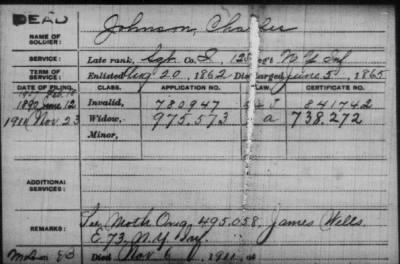 DEAD
NAME OF SOLDIER: Johnson, Charles
SERVICE: Late rank, Sgt. Co. I, 125 Reg't N.Y. Inf
TERM OF SERVICE: Enlisted Aug 20, 1862 Discharged June 5, 1865
DATE OF FILING. CLASS. APPLICATION NO. LAW. CERTIFICATE NO.
1892 June 12 Invalid, 780947 841742
1911 Nov. 23 Widow, 975.573 a 738.272
Minor,
ADDITIONAL SERVICES:
REMARKS: See Moth. Orig. 495.058. James Wells.
E. 73, N.Y. Inf.
Died Nov 6 1911, at